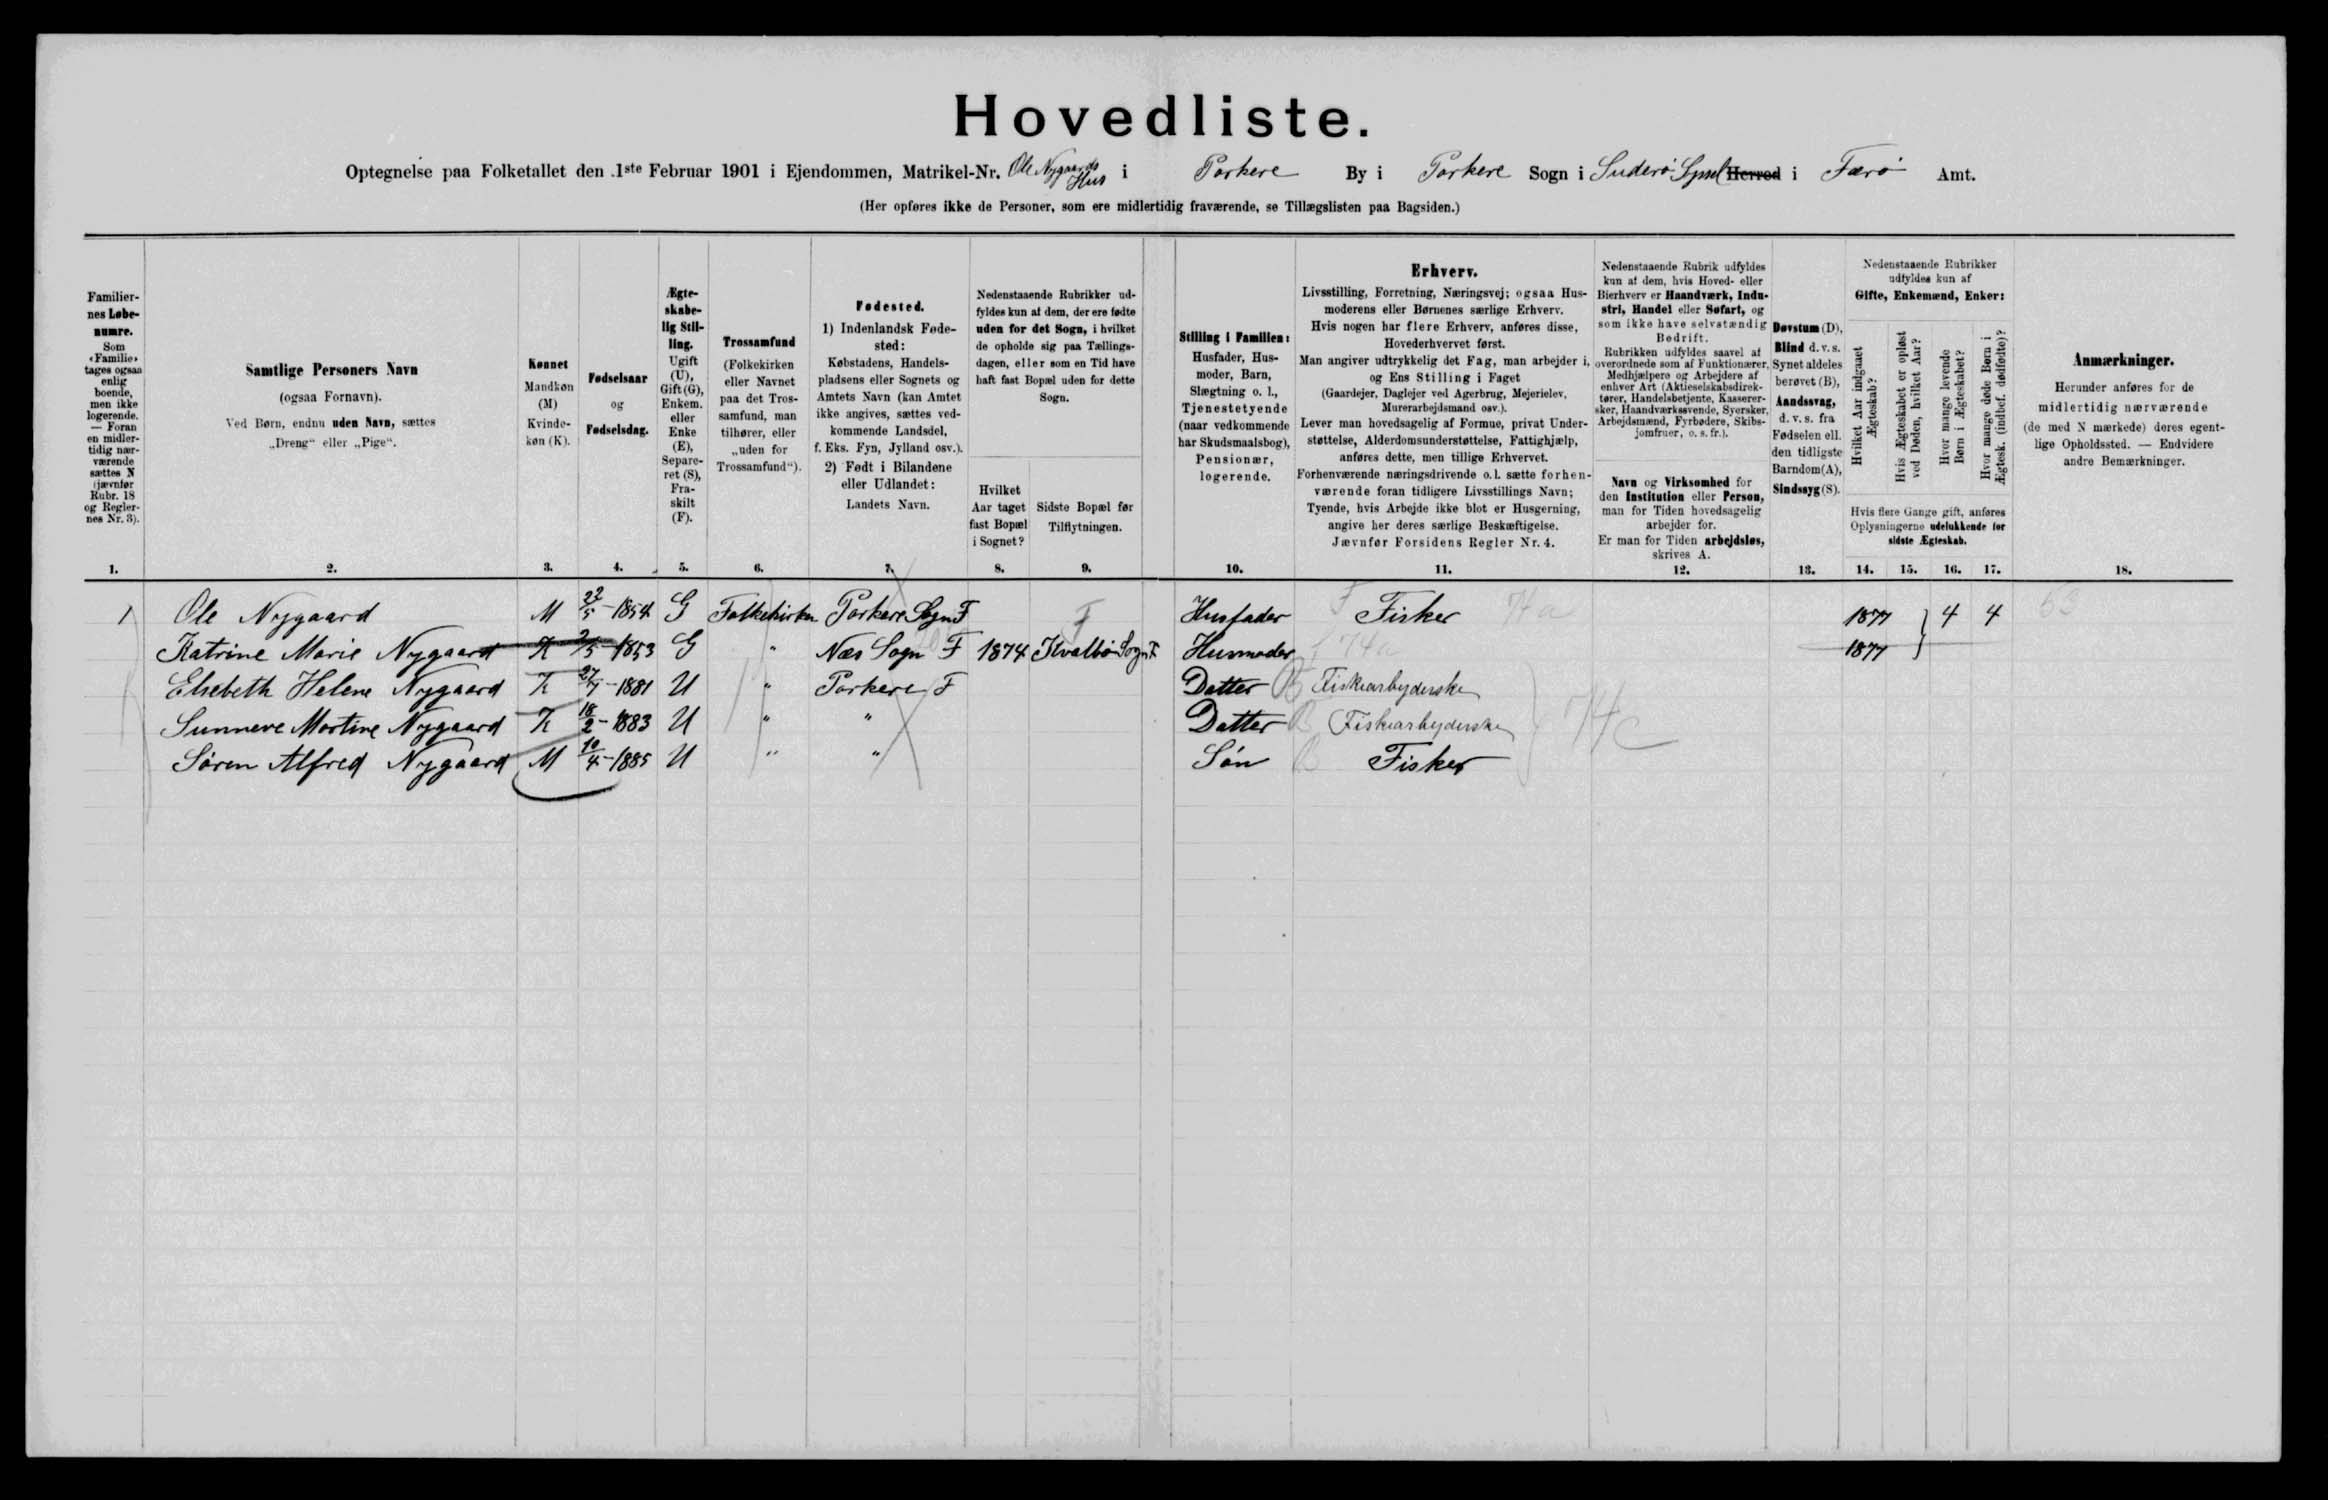 Hovedliste.
Optegnelse paa Folketallet den 1ste Februar 1901 i Ejendommen, Matrikel-Nr. Ole Nygaards Hus i Porkere By i Porkere Sogn i Suderø Syssel Herred i Færø Amt.
(Her opføres ikke de Personer, som ere midlertidig fraværende, se Tillægslisten paa Bagsiden.)
Familier-
nes Løbe-
numre.
Som
«Familie»
tages ogsaa
enlig
boende,
men ikke
logerende.
— Foran
en midler-
tidig nær-
værende
sættes N
(jævnfør
Rubr. 18
og Regler-
nes Nr. 3).
1.
Samtlige Personers Navn
(ogsaa Fornavn).
Ved Børn, endnu uden Navn, sættes
„Dreng“ eller „Pige“.
2.
Kønnet
Mandkøn
(M)
Kvinde-
køn (K).
3.
Fødselsaar
og
Fødselsdag.
4.
Ægte-
skabe-
lig Stil-
ling.
Ugift
(U),
Gift (G),
Enkem.
eller
Enke
(E),
Separe-
ret (S),
Fra-
skilt
(F).
5.
Trossamfund
(Folkekirken
eller Navnet
paa det Tros-
samfund, man
tilhører, eller
„uden for
Trossamfund“).
6.
Fødested.
1) Indenlandsk Føde-
sted:
Købstadens, Handels-
pladsens eller Sognets og
Amtets Navn (kan Amtet
ikke angives, sættes ved-
kommende Landsdel,
f. Eks. Fyn, Jylland osv.).
2) Født i Bilandene
eller Udlandet:
Landets Navn.
7.
Nedenstaaende Rubrikker ud-
fyldes kun af dem, der ere fødte
uden for det Sogn, i hvilket
de opholde sig paa Tællings-
dagen, eller som en Tid have
haft fast Bopæl uden for dette
Sogn.
Hvilket
Aar taget
fast Bopæl
i Sognet?
8.
Sidste Bopæl før
Tilflytningen.
9.
Stilling i Familien:
Husfader, Hus-
moder, Barn,
Slægtning o. l.,
Tjenestetyende
(naar vedkommende
har Skudsmaalsbog),
Pensionær,
logerende.
10.
Erhverv.
Livsstilling, Forretning, Næringsvej; ogsaa Hus-
moderens eller Børnenes særlige Erhverv.
Hvis nogen har flere Erhverv, anføres disse,
Hovederhvervet først.
Man angiver udtrykkelig det Fag, man arbejder i,
og Ens Stilling i Faget
(Gaardejer, Daglejer ved Agerbrug, Mejerielev,
Murerarbejdsmand osv.).
Lever man hovedsagelig af Formue, privat Under-
støttelse, Alderdomsunderstøttelse, Fattighjælp,
anføres dette, men tillige Erhvervet.
Forhenværende næringsdrivende o. l. sætte forhen-
værende foran tidligere Livsstillings Navn;
Tyende, hvis Arbejde ikke blot er Husgerning,
angive her deres særlige Beskæftigelse.
Jævnfør Forsidens Regler Nr. 4.
11.
Nedenstaaende Rubrik udfyldes
kun af dem, hvis Hoved- eller
Bierhverv er Haandværk, Indu-
stri, Handel eller Søfart, og
som ikke have selvstændig
Bedrift.
Rubrikken udfyldes saavel af
overordnede som af Funktionærer,
Medhjælpere og Arbejdere af
enhver Art (Aktieselskabsdirek-
tører, Handelsbetjente, Kasserer-
sker, Haandværkssvende, Syersker,
Arbejdsmænd, Fyrbødere, Skibs-
jomfruer, o. s. fr.).
Navn og Virksomhed for
den Institution eller Person,
man for Tiden hovedsagelig
arbejder for.
Er man for Tiden arbejdsløs,
skrives A.
12.
Døvstum (D),
Blind d. v. s.
Synet aldeles
berøvet (B),
Aandssvag,
d. v. s. fra
Fødselen ell.
den tidligste
Barndom (A),
Sindssyg (S).
13.
Nedenstaaende Rubrikker
udfyldes kun af
Gifte, Enkemænd, Enker:
Hvilket Aar indgaaet
Ægteskab?
Hvis Ægteskabet er opløst
ved Døden, hvilket Aar?
Hvor mange levende
Børn i Ægteskabet?
Hvor mange døde Børn i
Ægtesk. (indbef. dødfødte)?
Hvis flere Gange gift, anføres
Oplysningerne udelukkende for
sidste Ægteskab.
14. 15. 16. 17.
Anmærkninger.
Herunder anføres for de
midlertidig nærværende
(de med N mærkede) deres egent-
lige Opholdssted. — Endvidere
andre Bemærkninger.
18.
1 Ole Nygaard M 22/5-1854 G Folkekirken Porkere Sogn F F Husfader F Fisker 74a 1877 4 4 53
Katrine Marie Nygaard K 2/5-1853 G " Næs Sogn F 1874 Kvalbø Sogn F Husmoder f 74a 1877
Elsebeth Helene Nygaard K 27/7-1881 U " Porkere F Datter B Fiskearbyderske
Sunneve Mortine Nygaard K 18/2-1883 U " " Datter B Fiskearbyderske 74c
Sören Alfred Nygaard M 10/4-1885 U " " Sön B Fisker